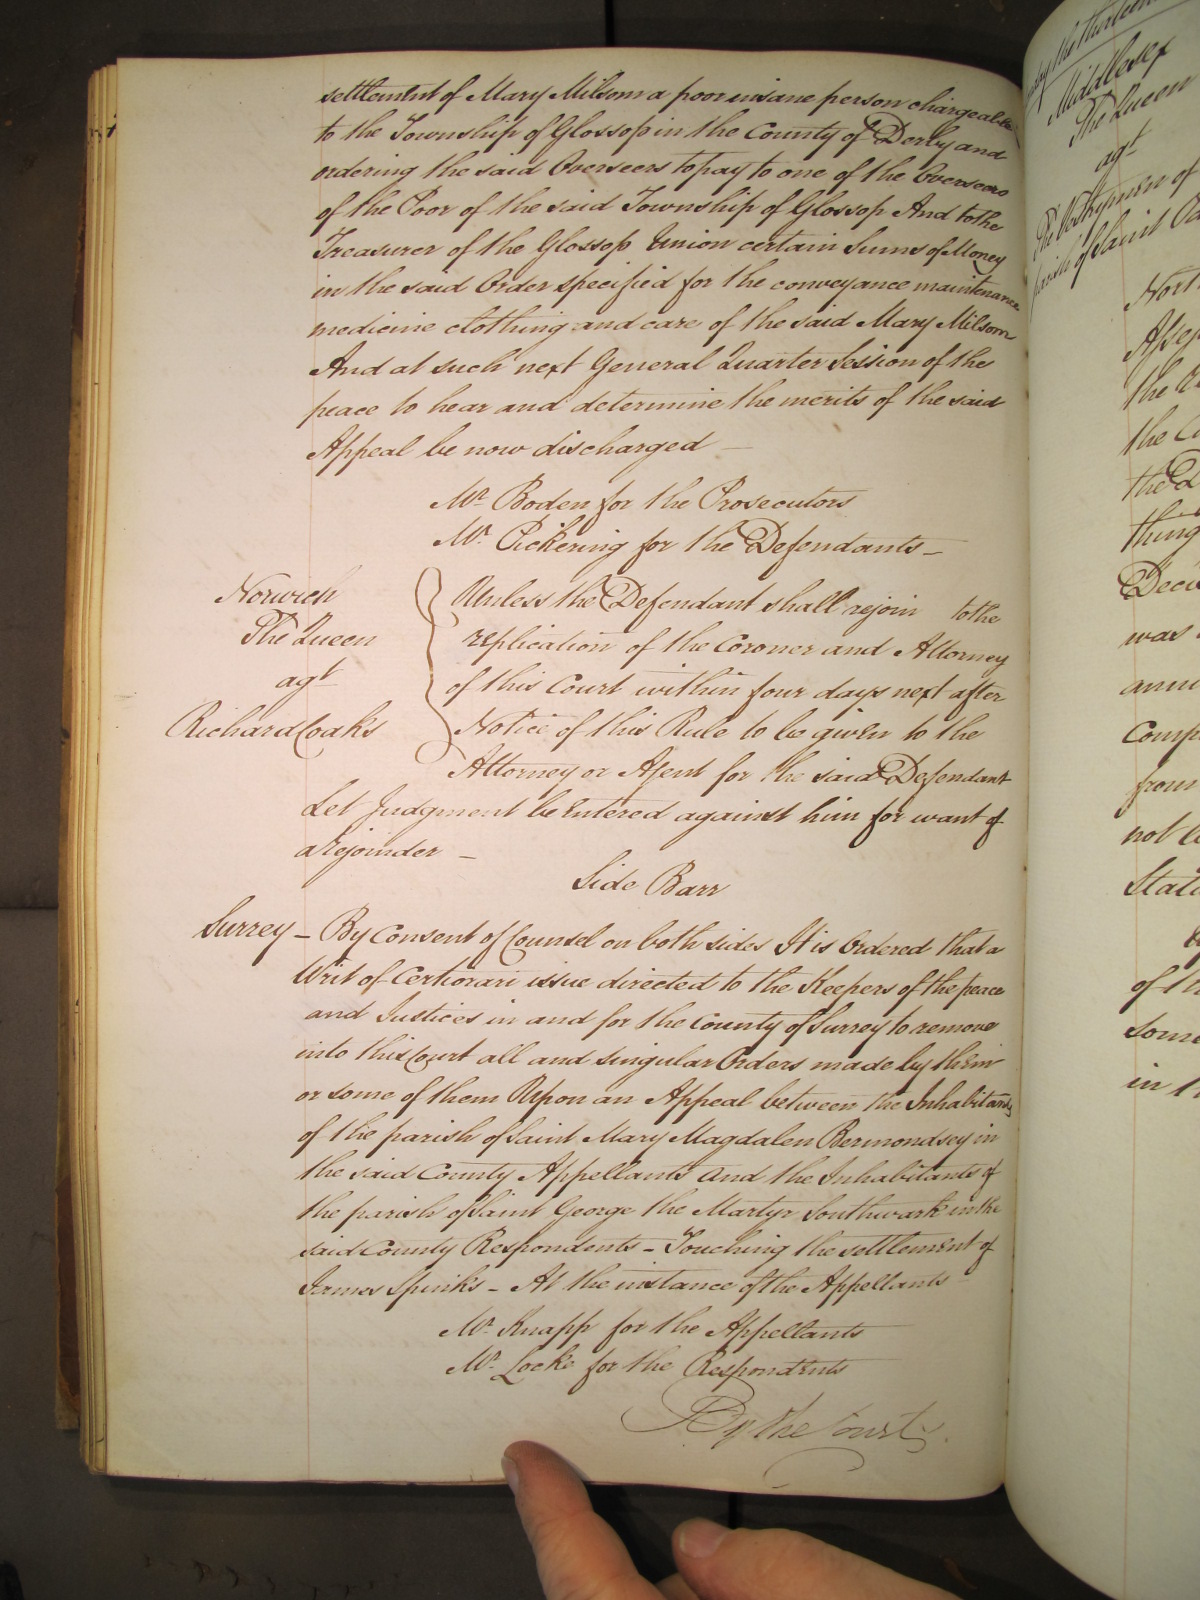 settlement of Mary Milsom a poor insane person chargeable
to the Township of Glossop in the County of Derby and
ordering the said Overseers to pay to one of the Overseers
of the Poor of the said Township of Glossop And to the
Treasurer of the Glossop Union certain Sums of Money
in the said Order specified for the conveyance maintenance
medicine clothing and care of the said Mary Milsom
And at such next General Quarter Session of the
peace to hear and determine the merits of the said
Appeal be now discharged —
Mr. Boden for the Prosecutors
Mr. Pickering for the Defendants —
Norwich
The Queen
agt
Richard Coaks
Unless the Defendant shall rejoin to the
replication of the Coroner and Attorney
of this Court within four days next after
Notice of this Rule to be given to the
Attorney or Agent for the said Defendant
Let Judgment be Entered against him for want of
a Rejoinder —
Side Barr
Surrey — By Consent of Counsel on both sides It is Ordered that a
Writ of Certiorari issue directed to the Keepers of the peace
and Justices in and for the County of Surrey to remove
into this Court all and singular Orders made by them
or some of them Upon an Appeal between the Inhabitants
of the parish of Saint Mary Magdalen Bermondsey in
the said County Appellants and the Inhabitants of
the parish of Saint George the Martyr Southwark in the
said County Respondents — Touching the settlement of
James Spinks — At the instance of the Appellants
Mr. Knapp for the Appellants
Mr. Locke for the Respondents
By the Court
Middlesex
The Queen
agt
The Vestrymen of
parish of Saint
the
the
the
thing
was
from
not
of
some
in